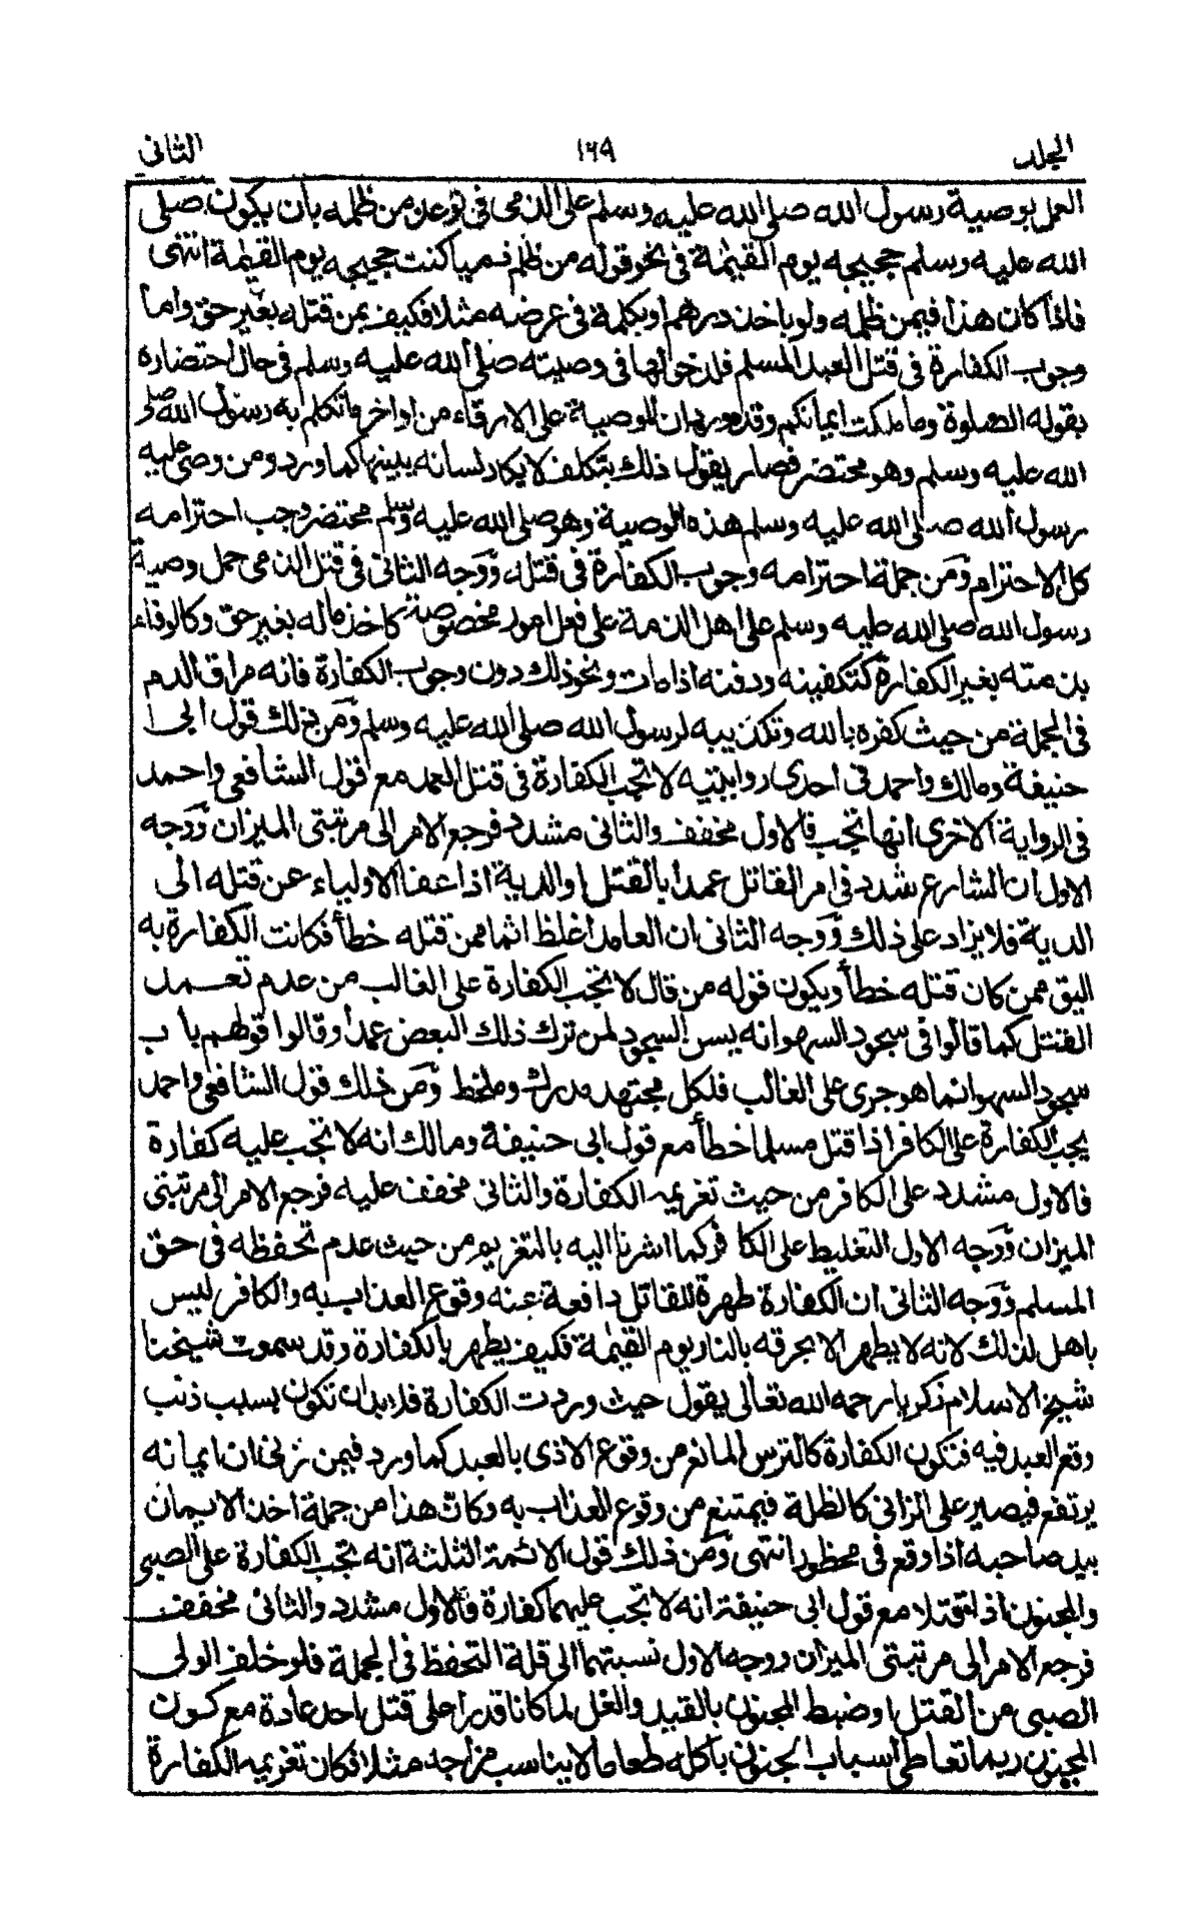 المجلد ١٦٩ الثاني
العمل بوصية رسول الله صلى الله عليه وسلم على الذمى فى توعد من ظلمه بأن يكون صلى
الله عليه وسلم حجيجه يوم القيٰمة فى نحو قوله من ظلم ذميا كنت حجيجه يوم القيٰمة انتهى
فاذا كان هذا فيمن ظلمه ولو باخذ درهم او بكلمة فى عرضه مثلا فكيف بمن قتله بغير حق واما
وجوب الكفارة فى قتل العبد المسلم فلدخولهما فى وصيته صلى الله عليه وسلم فى حال احتضاره
بقوله الصلوة وما ملكت ايمانكم وقد ورد ان الوصية على الارقاء من اواخر ما تكلم به رسول الله صلى
الله عليه وسلم وهو محتضر فصار يقول ذلك بتكلف لا يكاد لسانه يبينها كما ورد ومن وصى عليه
رسول الله صلى الله عليه وسلم هذه الوصية وهو صلى الله عليه وسلم محتضر وجب احترامه
كل الاحترام ومن جملة احترامه وجوب الكفارة فى قتله ووجه الثانى فى قتل الذمى حمل وصية
رسول الله صلى الله عليه وسلم على اهل الذمة على فعل امور مخصوصة كاخذ ماله بغير حق وكالوفاء
بذمته بغير الكفارة كتكفينه ودفنه اذا مات ونحو ذلك دون وجوب الكفارة فانه مراق الدم
فى الجملة من حيث كفره بالله وتكذيبه لرسول الله صلى الله عليه وسلم ومن ذلك قول ابى
حنيفة ومالك واحمد فى احدى روايتيه لا تجب الكفارة فى قتل العمد مع قول الشافعى واحمد
فى الرواية الاخرى انها تجب فالاول مخفف والثانى مشدد فرجع الامر الى مرتبتى الميزان ووجه
الاول ان الشارع شدد فى امر القاتل عمدا بالقتل او الدية اذا عفا الاولياء عن قتله الى
الدية فلا يزاد على ذلك ووجه الثانى ان العامد اغلظ اثما ممن قتله خطأ فكانت الكفارة به
اليق ممن كان قتله خطأ ويكون قوله من قال لا تجب الكفارة على الغالب من عدم تعمد
القتل كما قالوا فى سجود السهو انه يسن السجود لمن ترك ذلك البعض عمدا وقالوا قولهم باب
سجود السهو انما هو جرى على الغالب فلكل مجتهد مدرك وملحظ ومن ذلك قول الشافعى واحمد
يجب الكفارة على الكافر اذا قتل مسلما خطأ مع قول ابى حنيفة ومالك انه لا تجب عليه كفارة
فالاول مشدد على الكافر من حيث تغريمه الكفارة والثانى مخفف عليه فرجع الامر الى مرتبتى
الميزان ووجه الاول التغليظ على الكافر كما اشرنا اليه بالتغريم من حيث عدم تحفظه فى حق
المسلم ووجه الثانى ان الكفارة طهرة للقاتل دافعة عنه وقوع العذاب به والكافر ليس
باهل لذلك لانه لا يطهر الا بحرقه بالنار يوم القيٰمة فكيف يطهر بالكفارة وقد سموت شيخنا
شيخ الاسلام زكريا رحمه الله تعالى يقول حيث وردت الكفارة فلا بد ان تكون بسبب ذنب
وقع العبد فيه فتكون الكفارة كالترس المانع من وقوع الاذى بالعبد كما ورد فيمن زنى ان ايمانه
يرتفع فيصير على الزانى كالظلة فيمتنع من وقوع العذاب به وكان هذا من جملة اخذ الايمان
بيد صاحبه اذا وقع فى محظور انتهى ومن ذلك قول الائمة الثلثة انه تجب الكفارة على الصبى
والمجنون اذا قتلا مع قول ابى حنيفة انه لا تجب عليهما كفارة فالاول مشدد والثانى مخفف
فرجع الامر الى مرتبتى الميزان ووجه الاول نسبتهما الى قلة التحفظ فى الجملة فلو خلف الولى
الصبى من القتل او ضبط المجنون بالقيد والغل لما كانا قدرا على قتل احد عادة مع كون
المجنون ربما تعاطى اسباب الجنون باكله طعاما لا يناسب مزاجه مثلا فكان تغريمه الكفارة